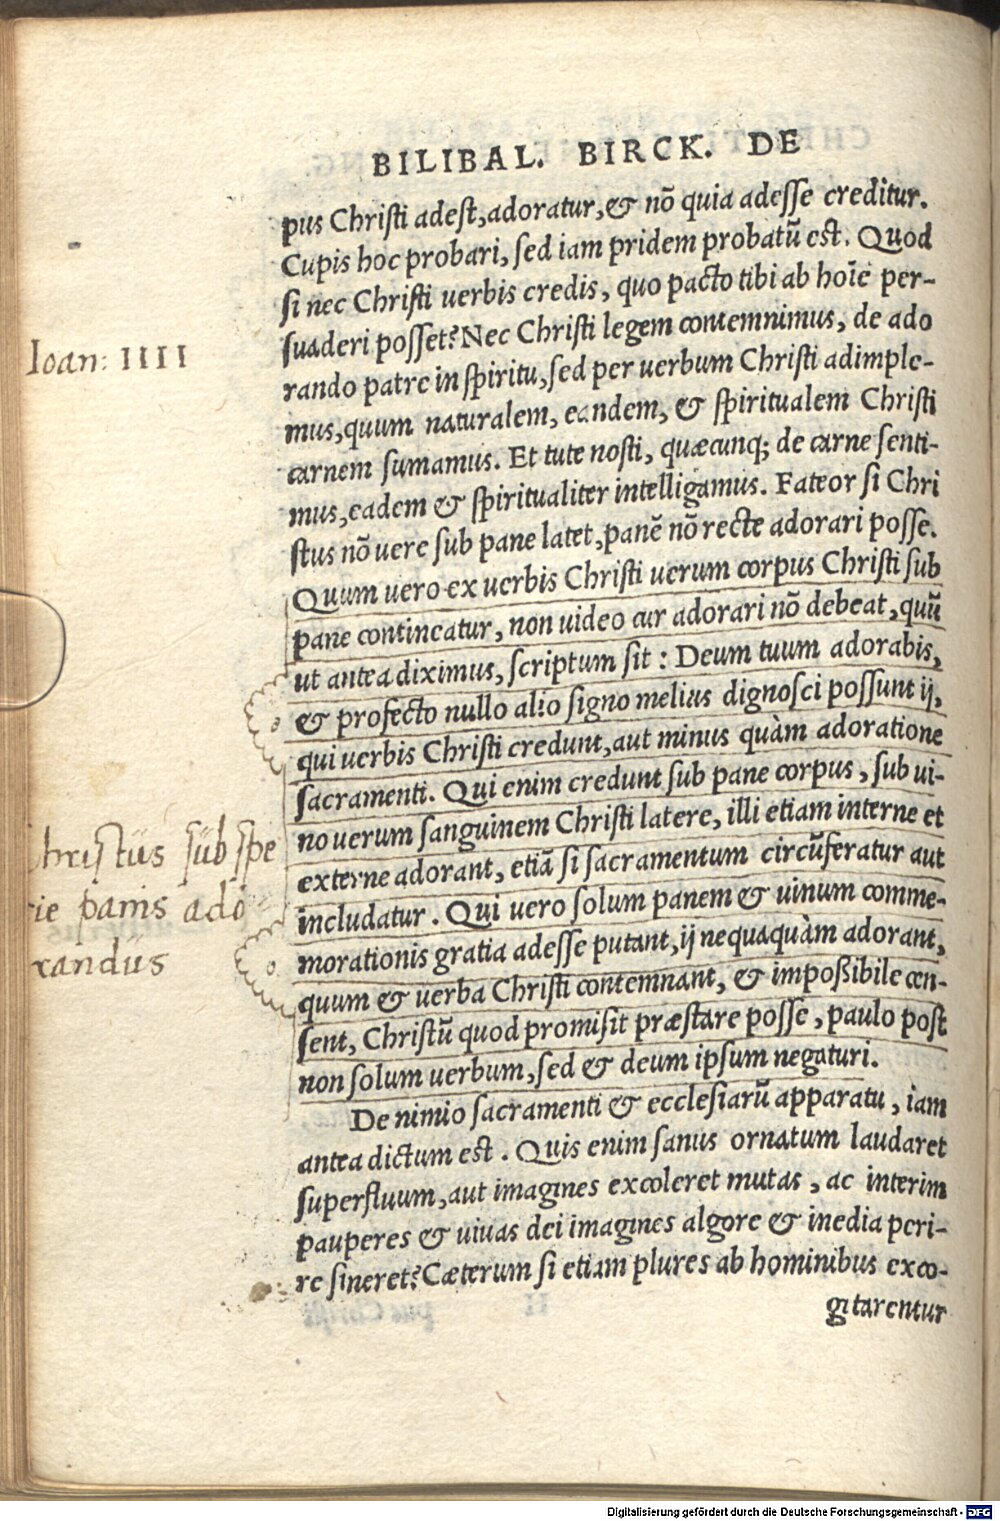 BILIBAL. BIRCK. DE
pus Christi adest, adoratur, & nõ quia adesse creditur.
Cupis hoc probari, sed iam pridem probatũ est. Quod
si nec Christi uerbis credis, quo pacto tibi ab hoĩe per-
suaderi posset? Nec Christi legem contemnimus, de ado
rando patre in spiritu, sed per uerbum Christi adimple-
mus, quum naturalem, eandem, & spiritualem Christi
carnem sumamus. Et tute nosti, quæcunq; de carne senti-
mus, eadem & spiritualiter intelligamus. Fateor si Chri
stus nõ uere sub pane latet, panẽ nõ recte adorari posse.
Quum uero ex uerbis Christi uerum corpus Christi sub
pane contineatur, non uideo cur adorari nõ debeat, quũ
ut antea diximus, scriptum sit : Deum tuum adorabis,
& profecto nullo alio signo melius dignosci possunt ij,
qui uerbis Christi credunt, aut minus quàm adoratione
sacramenti. Qui enim credunt sub pane corpus, sub ui-
no uerum sanguinem Christi latere, illi etiam interne et
externe adorant, etiã si sacramentum circũferatur aut
includatur. Qui uero solum panem & uinum comme-
morationis gratia adesse putant, ij nequaquàm adorant,
quum & uerba Christi contemnant, & impoßibile cen-
sent, Christũ quod promisit præstare posse, paulo post
non solum uerbum, sed & deum ipsum negaturi.
De nimio sacramenti & ecclesiarũ apparatu, iam
antea dictum est. Quis enim sanus ornatum laudaret
superfluum, aut imagines excoleret mutas, ac interim
pauperes & uiuas dei imagines algore & inedia peri-
re sineret? Cæterum si etiam plures ab hominibus exco-
gitarentur
Ioan: IIII
Christus sub spe
cie panis ado
randus
Digitalisierung gefördert durch die Deutsche Forschungsgemeinschaft - DFG